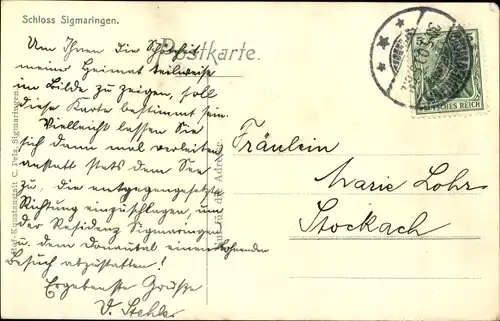 Schloss Sigmaringen.
Postkarte.
Um Ihnen die Schönheit
meiner Heimat teilweise
im Bilde zu zeigen, soll
diese Karte bestimmt sein.
Vielleicht lassen Sie
sich dann mal verleiten,
anstatt stets dem See
zu, die entgegengesetzte
Richtung einzuschlagen, um
der Residenz Sigmaringen
u. dem Donautal einen lohnenden
Besuch abzustatten!
Ergebenste Grüße
Fräulein
Marie Lohr
Stockach
DEUTSCHES REICH
5
Nur für die Adresse.
Hof-Kunstanstalt C. Pelz, Sigmaringen.